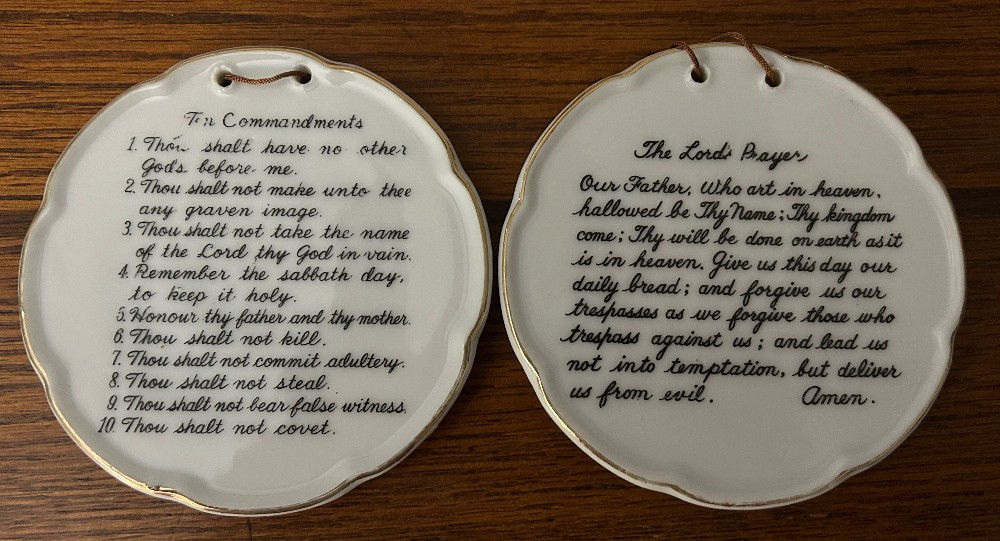 Ten Commandments
1. Thou shalt have no other
God's before me.
2. Thou shalt not make unto thee
any graven image.
3. Thou shalt not take the name
of the Lord thy God in vain.
4. Remember the sabbath day,
to keep it holy.
5. Honour thy father and thy mother.
6. Thou shalt not kill.
7. Thou shalt not commit adultery.
8. Thou shalt not steal.
9. Thou shalt not bear false witness.
10. Thou shalt not covet.
The Lord's Prayer
Our Father, Who art in heaven,
hallowed be Thy Name; Thy kingdom
come; Thy will be done on earth as it
is in heaven. Give us this day our
daily bread; and forgive us our
trespasses as we forgive those who
trespass against us; and lead us
not into temptation, but deliver
us from evil. Amen.